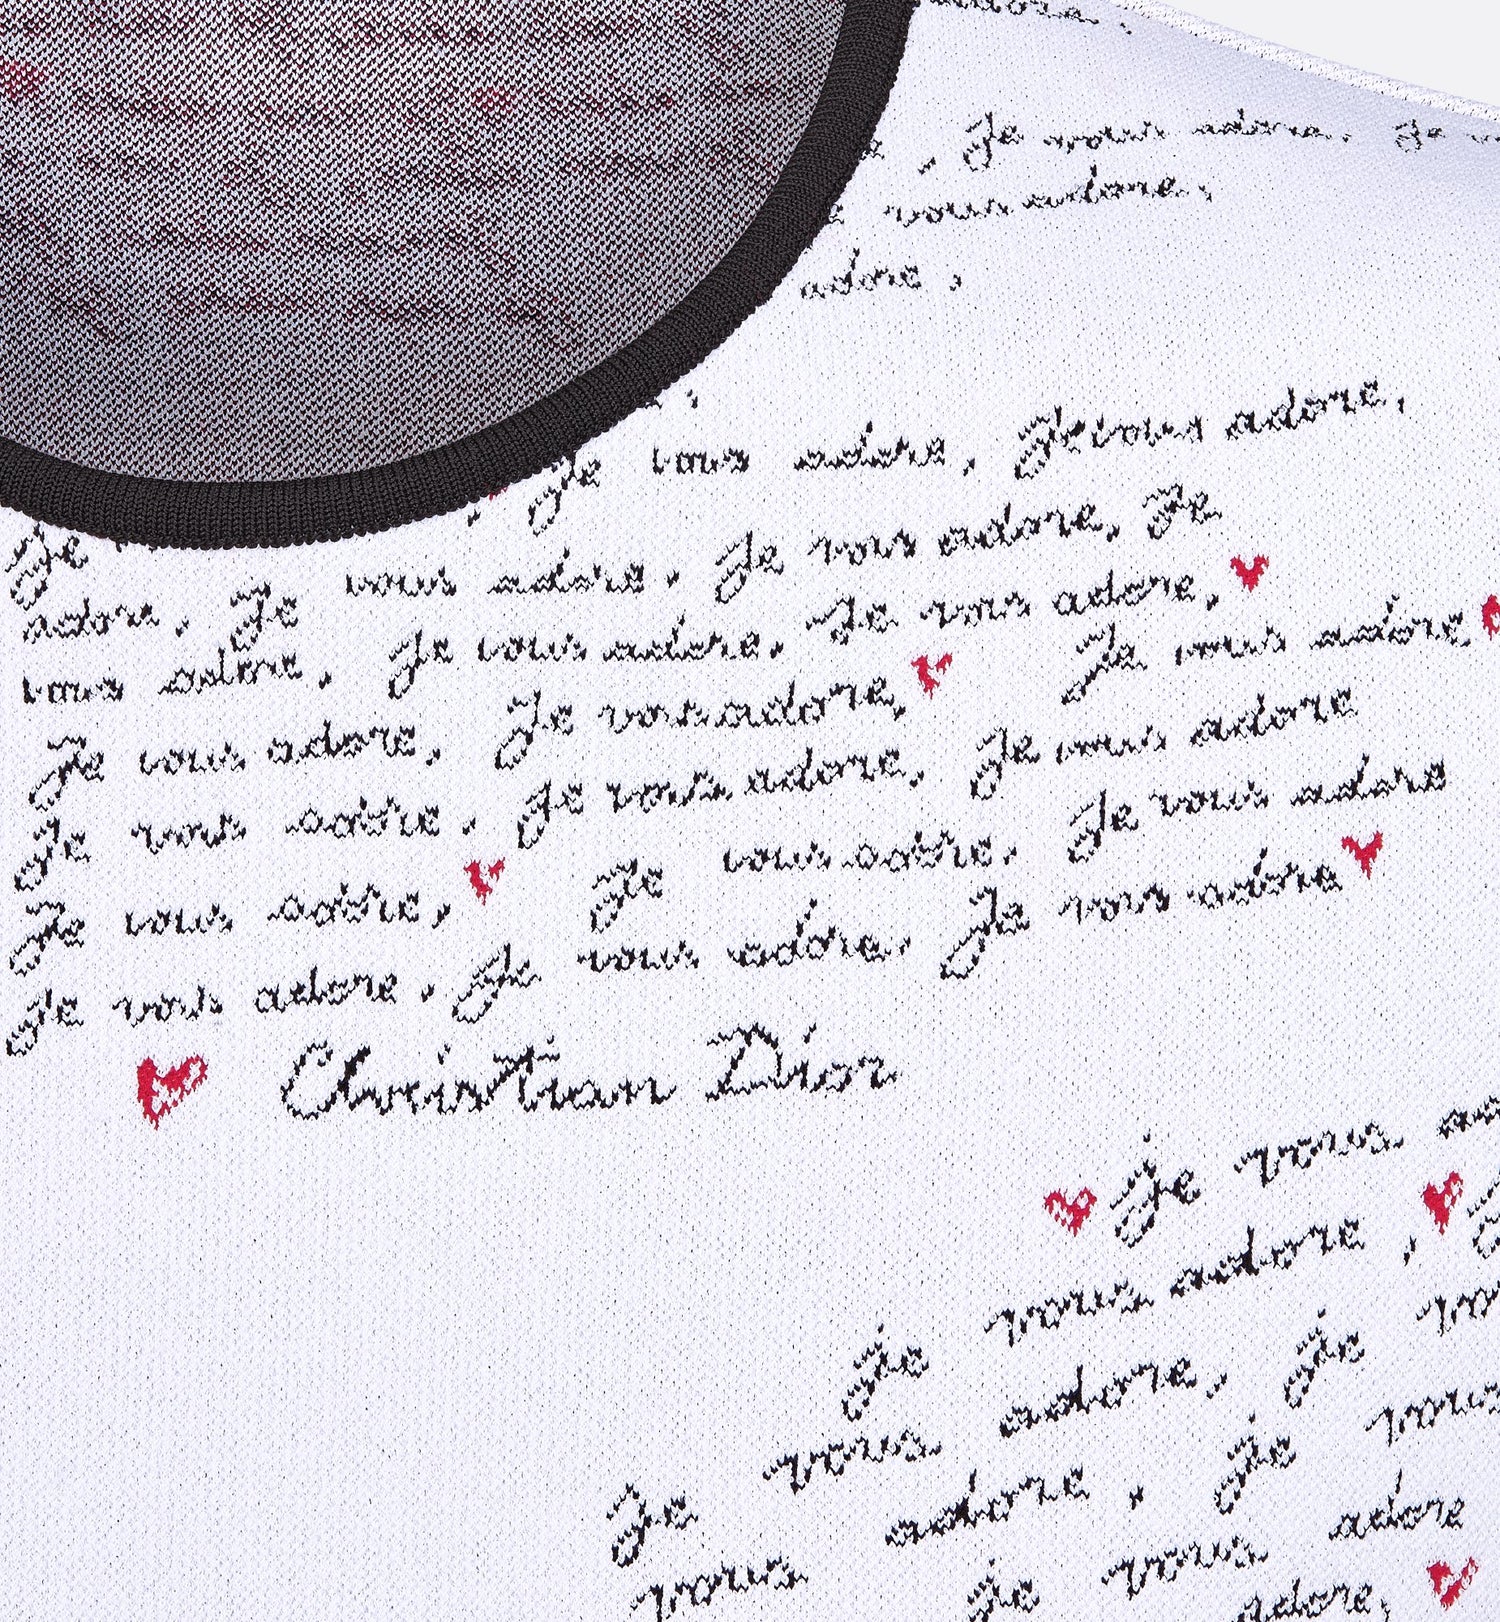 adore.
, Je vous adore. Je
vous adore,
adore,
Je vous adore, Je vous adore,
Je
adore, Je vous adore, Je vous adore, Je
vous adore, Je vous adore, Je vous adore,
Je vous adore, Je vous adore, Je vous adore
Je vous adore, Je vous adore, Je vous adore
Je vous adore, Je vous adore, Je vous adore
Je vous adore, Je vous adore, Je vous adore
Christian Dior
Je vous
vous adore,
Je adore, Je
vous adore, Je vous
Je adore, Je vous adore
vous Je vous adore,